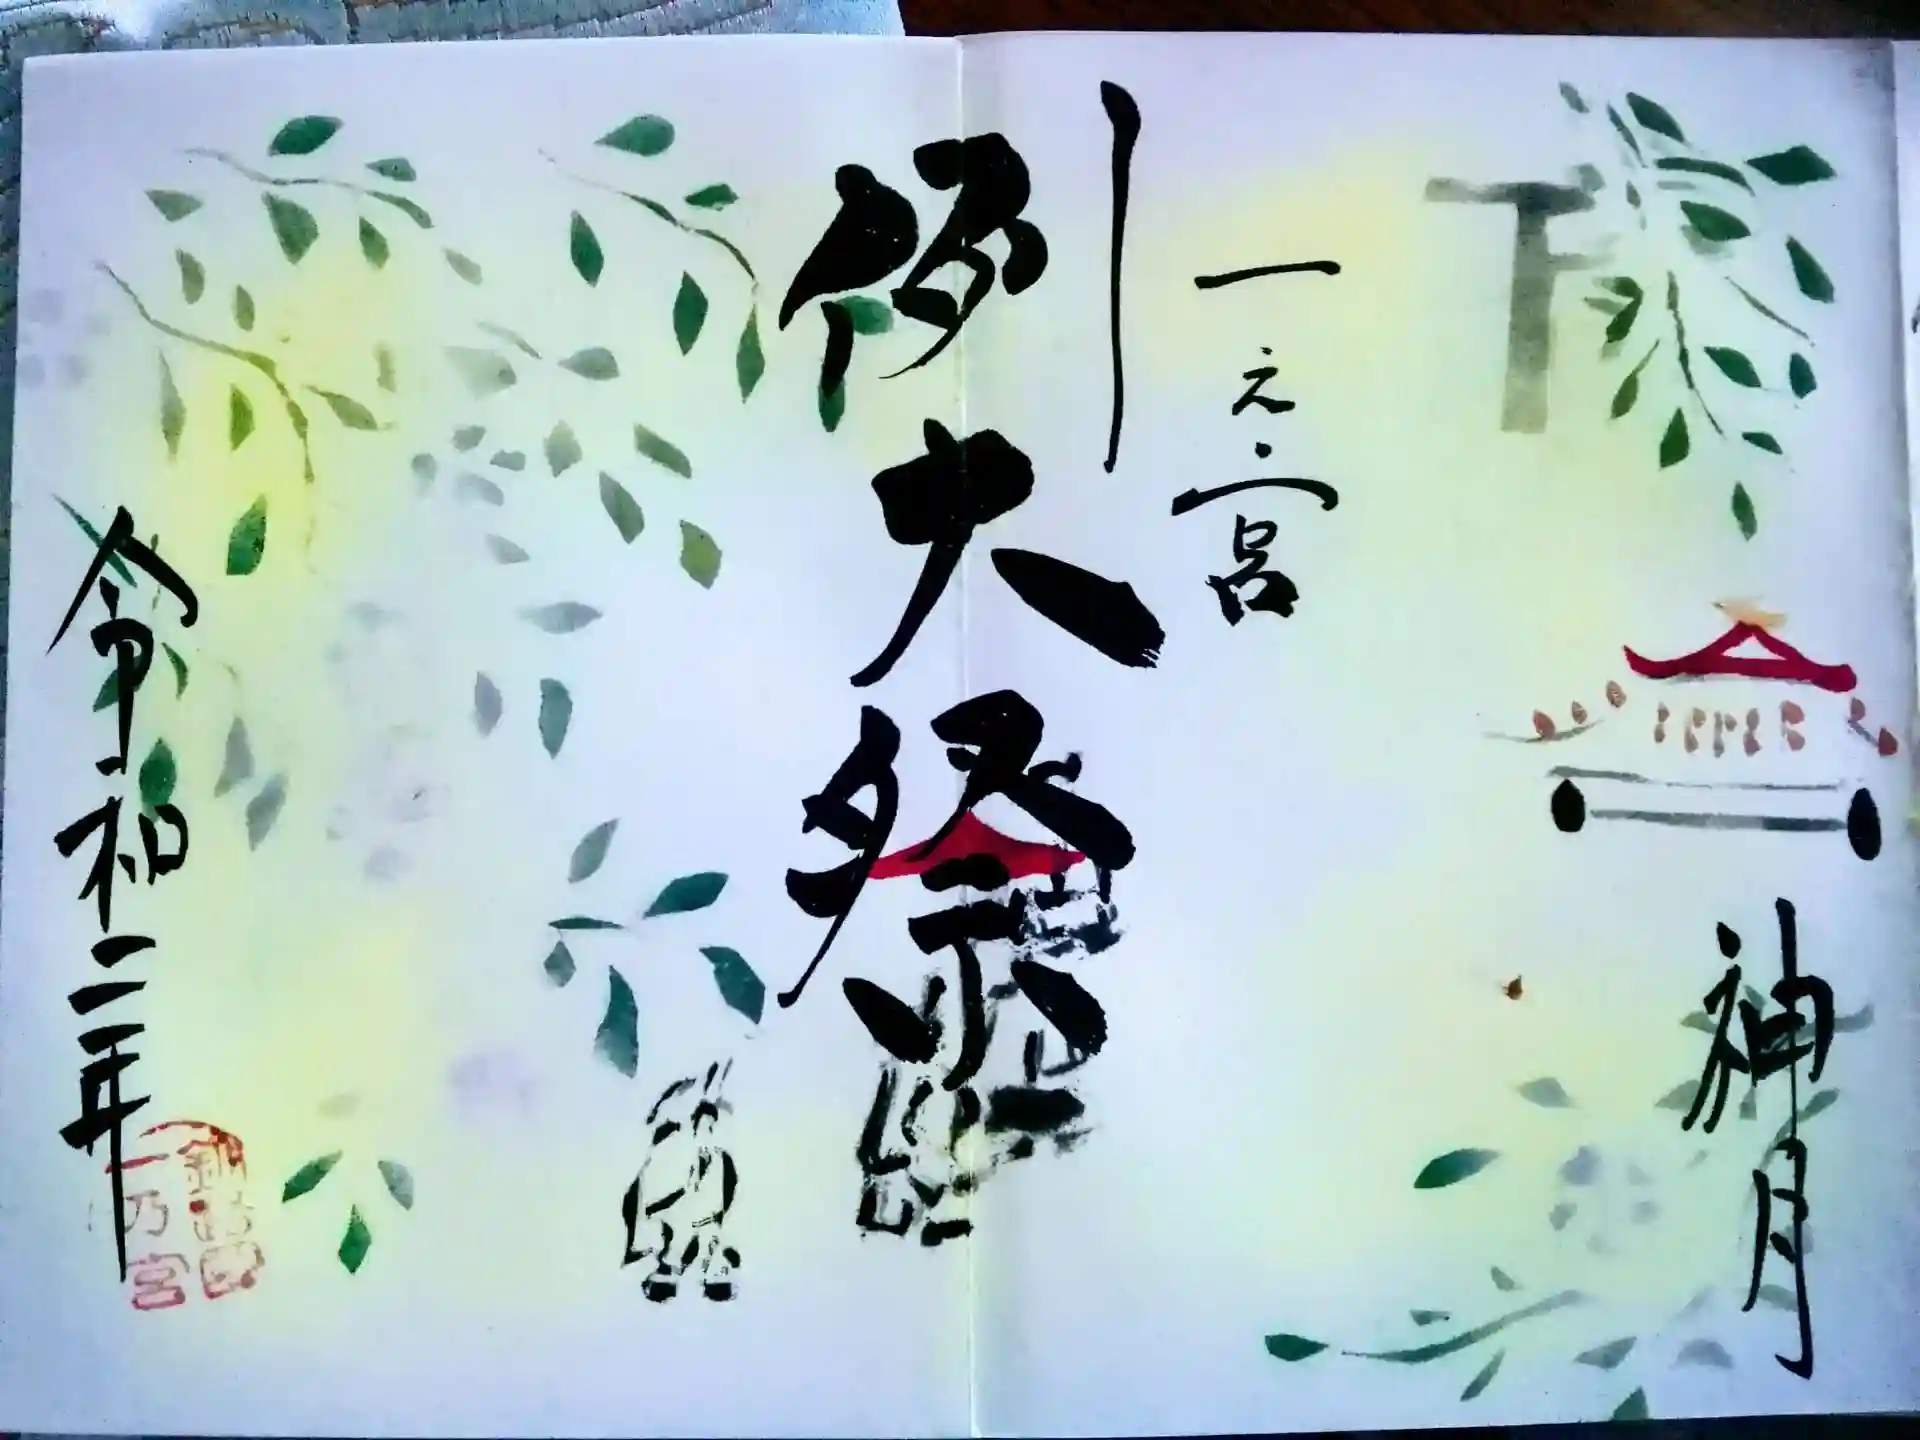 神月
一之宮
例大祭
令和二年
釧路國
一乃宮